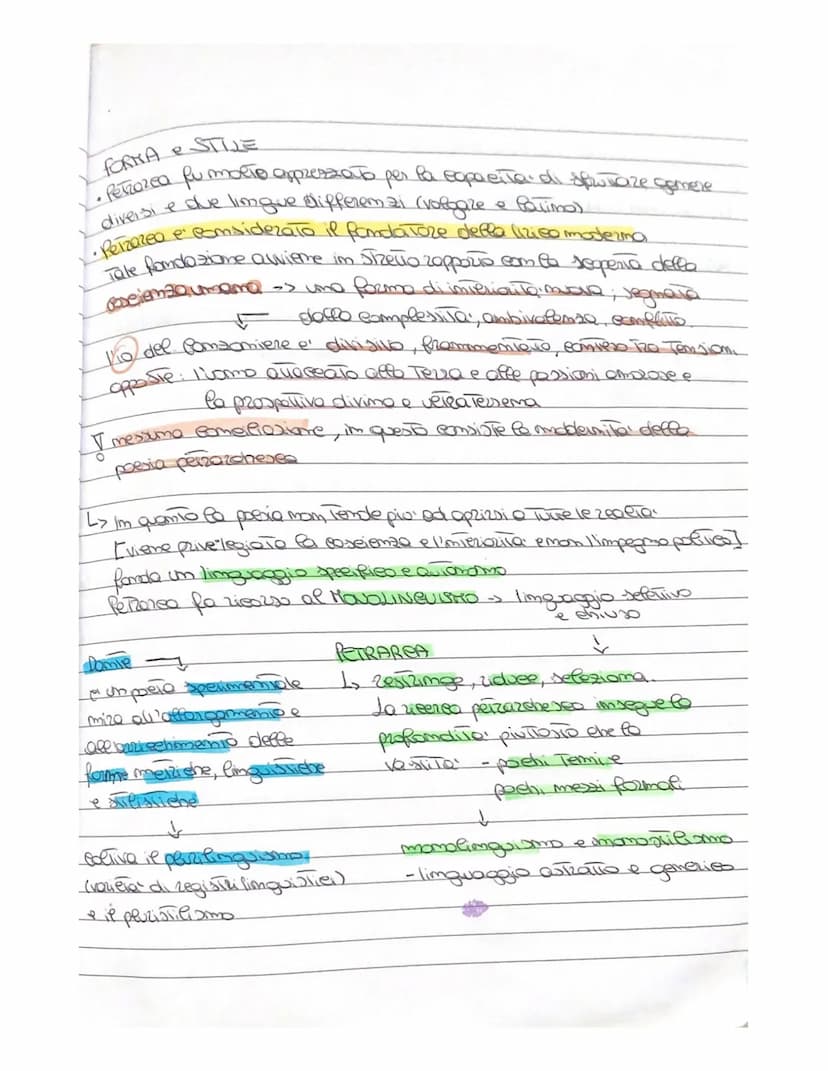 FORMA e STILE
• Petrarca fu molto apprezzato per la capacità di sfruttare genere
diversi e due lingue differenzi (volgare e latino)
• Petrarca e' considerato il fondatore della lirica moderna
Tale fondazione avviene in stretto rapporto con la scoperta della
coscienza umana -> una forma di interiorità nuova, segnata
dalla complessità, ambivalenza, conflitto
L'io del Canzoniere e' diviso, frammentato, conteso tra tensioni
opposte: l'uomo attaccato alla Terra e alle passioni amorose e
la prospettiva divina e ultraterrena
! nessuna conciliazione, in questo consiste la modernità della
poesia petrarchesca
↳ In quanto la poesia non tende più ad aprirsi a tutte le realtà
[viene privelegiata la coscienza e l'interiorità e non l'impegno politico]
fonda un linguaggio specifico e autonomo
Petrarca fa ricorso al MONOLINGUISMO -> linguaggio selettivo
e chiuso
Dante
e' un poeta sperimentale
mira all'allargamento e
all'arricchimento delle
forme metriche, linguistiche
e stilistiche
↓
coltiva il plurilinguismo
(varietà di registri linguistici)
e il pluristilismo
PETRARCA
↳ restringe, riduce, seleziona.
La ricerca petrarchesca insegue la
profondità piuttosto che la
vastità - pochi temi e
pochi mezzi formali
↓
monolinguismo e monostilismo
- linguaggio astratto e generico